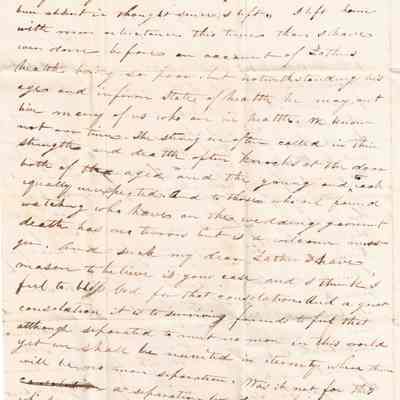 been absent in thought since I left. I left home
with more reluctance this time than I have
ever done before on account of Fathers
health being so poor but notwithstanding his
age and infirm state of health he may out
live many of us who are in health. We know
not our time the strong are often called in their
strength and death often knocks at the door
both of the aged and the young and each
equally unexpected And to those who are found
watching who have on the wedding garment
death has no terrors but is a welcome messen
ger. And such my dear Father I have
reason to believe is your case and I think I
feel to bless God for that consolation And a great
consolation it is to surviving friends to feel that
although separated to meet no more in this world
yet we shall be reunited in eternity where there
will be no more separation. Was it not for this
a separation